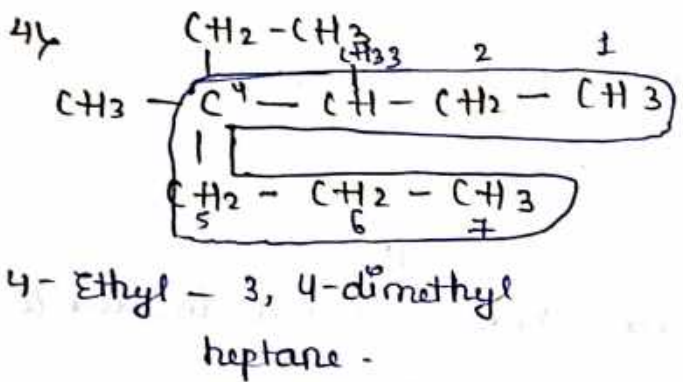 4) CH2 - CH3
CH3 3 2 1
CH3 - C 4 - CH - CH2 - CH3
CH2 - CH2 - CH3
5 6 7
4 - Ethyl - 3, 4-dimethyl
heptane.